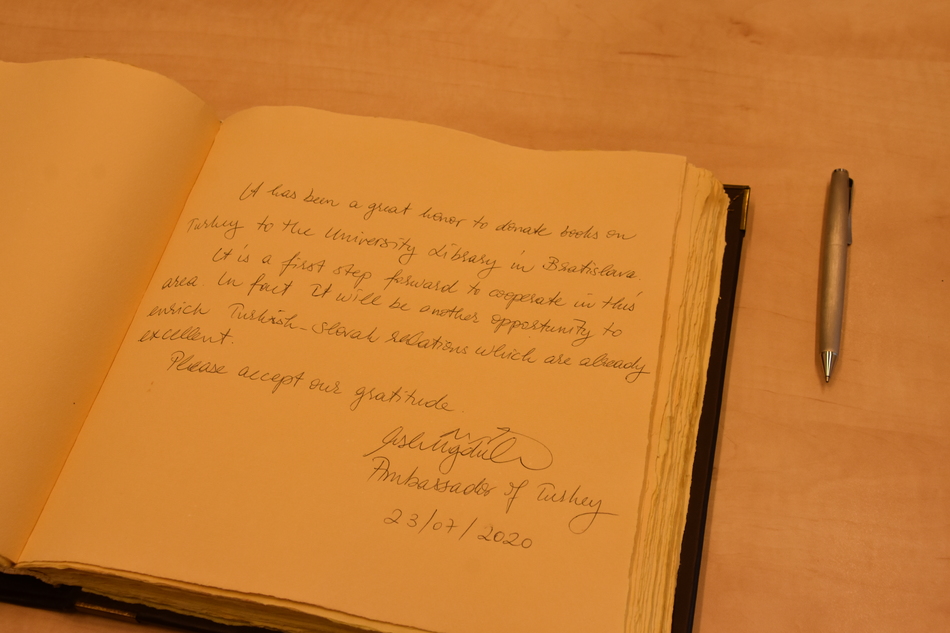 It has been a great honor to donate books on
Turkey to the University Library in Bratislava.
It is a first step forward to cooperate in this
area. In fact It will be another opportunity to
enrich Turkish-Slovak relations which are already
excellent.
Please accept our gratitude.
Ambassador of Turkey
23/07/2020